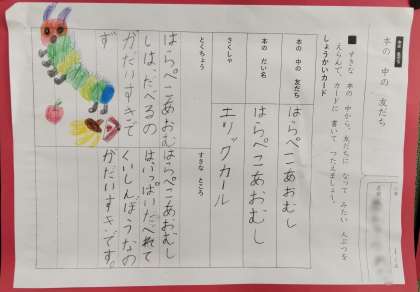 本の 中の 友だち
■ すきな 本の 中から、友だちに なって みたい 人ぶつを
えらんで、カードに 書いて つたえましょう。
しょうかいカード
本の 中の 友だち
はらぺこあおむし
本の だい名
はらぺこあおむし
さくしゃ
エリックカール
とくちょう
はらぺこあおむ
しは、たべるの
がだいすきで
す
すきな ところ
はらぺこあおむし
はいっぱいたべれて
くいしんぼうなの
がだいすきです。